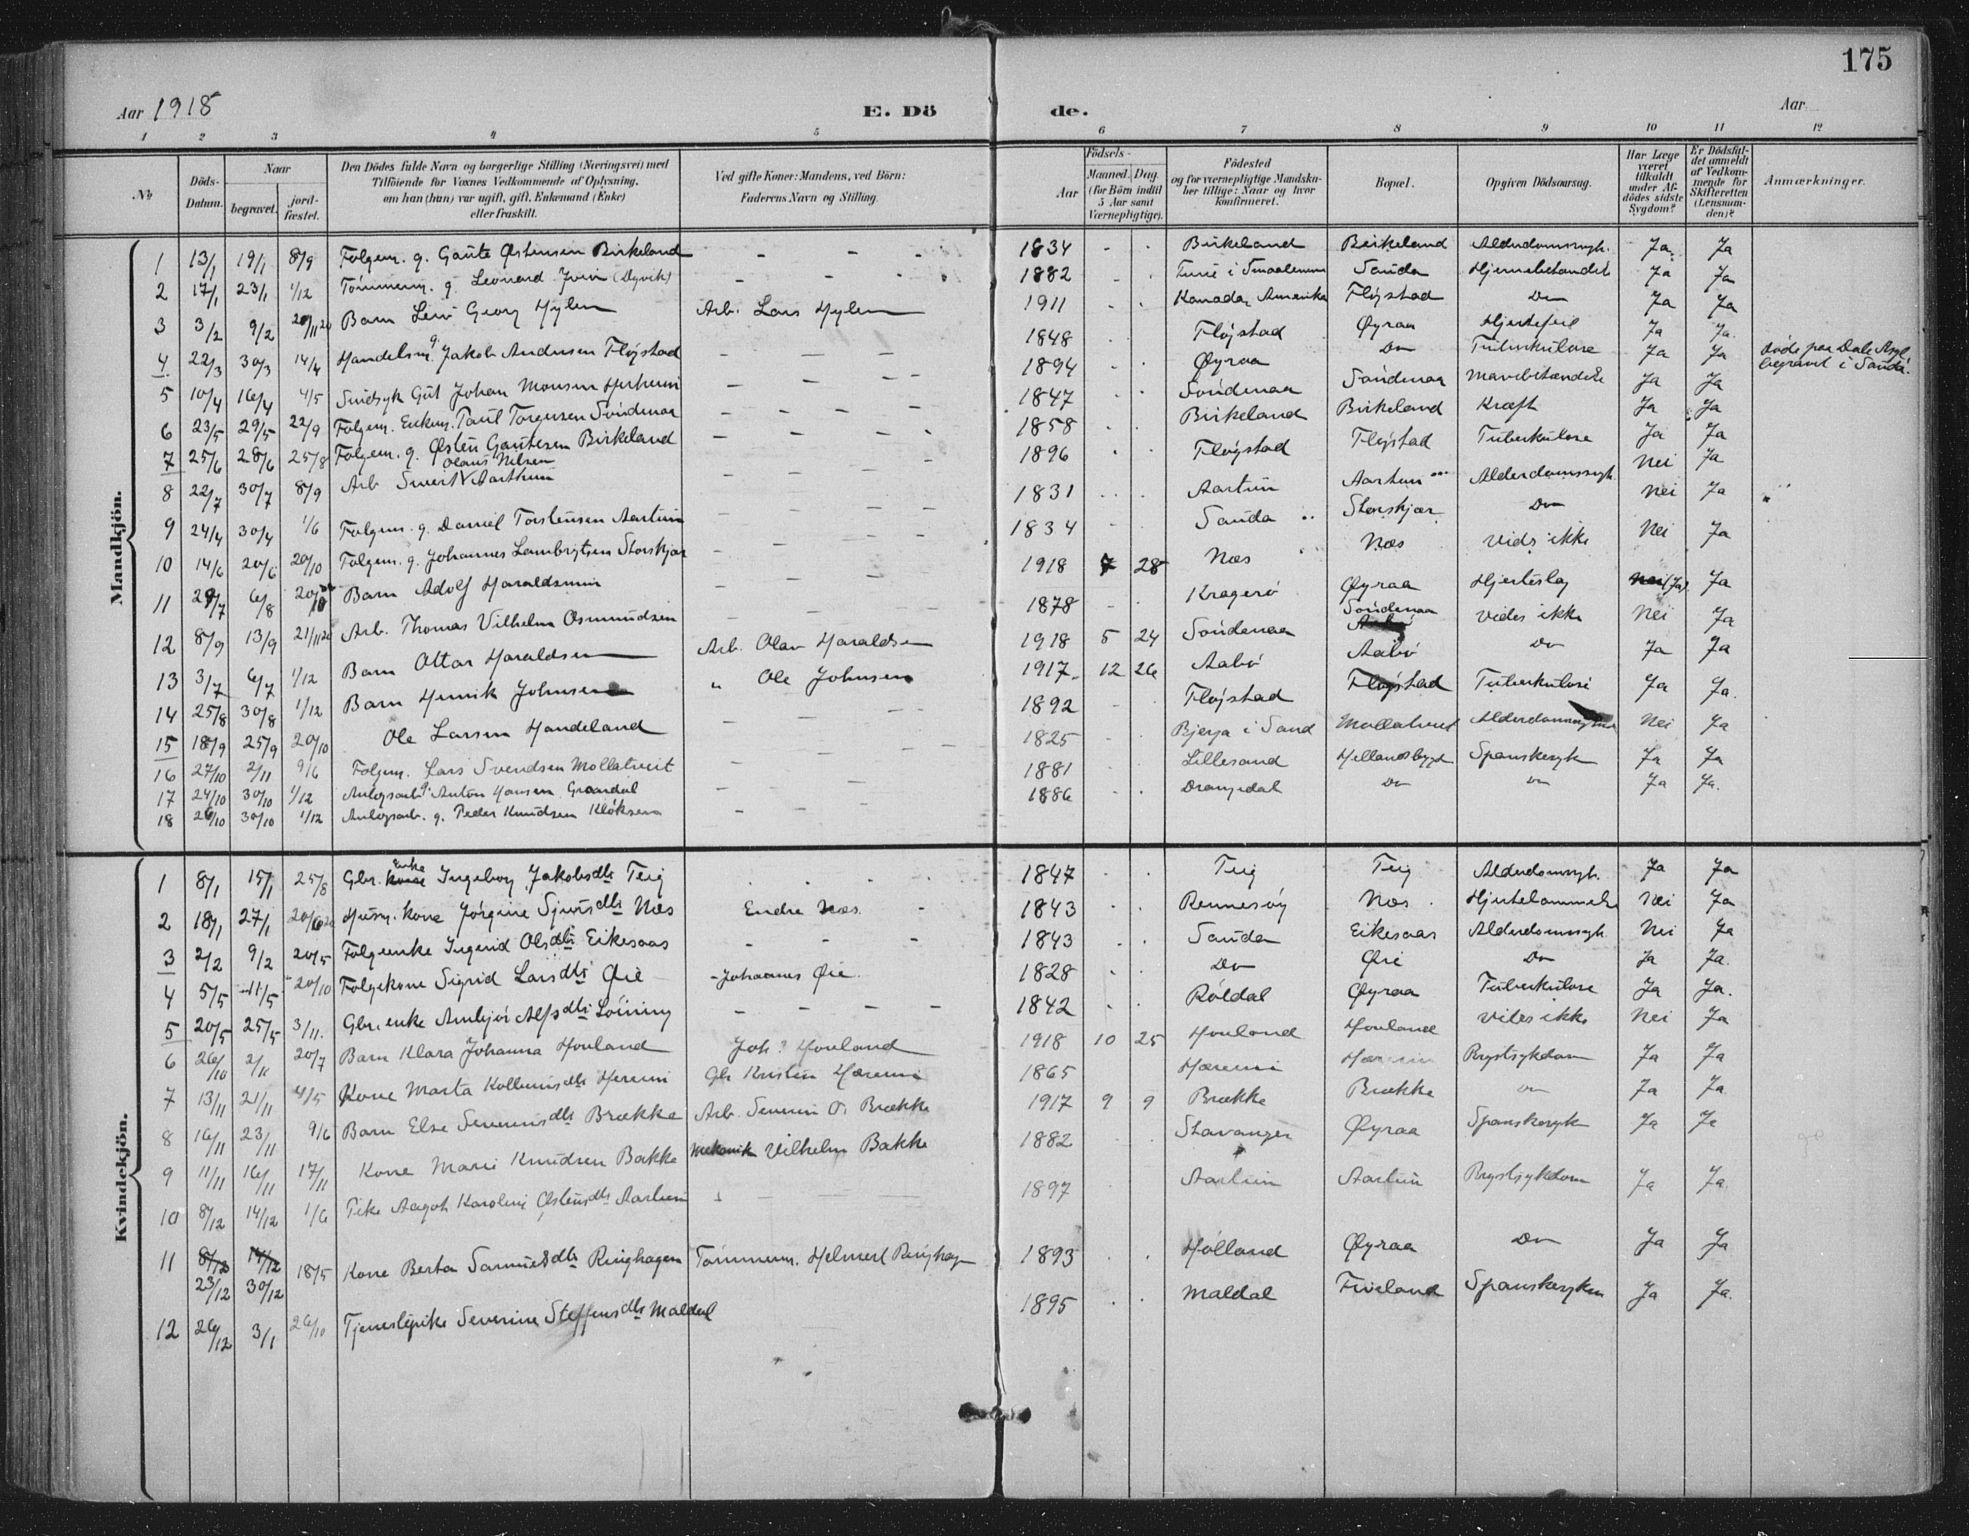 175
Aar 1918 E. Dö de. Aar
1 2 3 4 5 6 7 8 9 10 11 12
No
Döds-Datum.
Naar
begravet.
jord-fæstet.
Den Dödes fulde Navn og borgerlige Stilling (Næringsvei) med
Tilföiende for Voxnes Vedkommende af Oplysning,
om han (hun) var ugift, gift, Enkemand (Enke)
eller fraskilt.
Ved gifte Koner: Mandens, ved Börn:
Faderens Navn og Stilling.
Födsels-
Aar
Maaned. Dag.
(for Börn indtil
5 Aar samt
Værnepligtige).
Födested
og for værnepligtige Mandska-
ber tillige: Naar og hvor
konfirmeret.
Bopæl.
Opgiven Dödsaarsag.
Har Læge
været
tilkaldt
under Af-
dödes sidste
Sygdom?
Er Dödsfal-
det anmeldt
af Vedkom-
mende for
Skifteretten
(Lensman-
den)?
Anmærkninger.
Mandkjön.
1 13/1 19/1 8/9 Folgem. g. Gaute Østensen Birkeland - - - - 1834 - - Birkeland Birkeland Alderdomssygh. Ja Ja
2 17/1 23/1 1/12 Tömmerm. g. Leonard (Dyvik) - - - 1882 - - Tune i Smaalenene Sauda Ja Ja
3 3/2 9/2 Barn Georg Hylen Arb. Lars Hylen 1911 - - Kanada, Amerika Fløgstad Do Ja Ja
4 22/3 30/3 14/4 Handelsm. g. Jakob Andersen Fløgstad - - - 1848 - - Fløgstad Øyraa Hjertefeil Ja Ja
5 10/4 16/4 4/5 Sindsyk Gut Johan Monsen - - - 1894 - - Øyraa Do Tuberkulose Ja Ja døde paa Dale Asyl begravet i Sauda.
6 23/5 29/5 22/9 Folgem. Enkem. Paul Torgersen Söndenaa - - - 1847 - - Söndenaa Söndenaa Mavebetændelse Ja Ja
7 25/6 28/6 25/8 Folgem. g. Østen Gautesen Birkeland - - - 1858 - - Birkeland Birkeland Kræft Ja Ja
8 22/7 30/7 8/9 Arb. Sivert Olaus Nilsen Aarthun - - - 1896 Fløgstad Fløgstad Tuberkulose Ja Ja
9 24/4 30/4 1/6 Folgem. g. Daniel Torstensen Aartun - - - 1831 - - Aartun Aartun Alderdomssygh. Nei Ja
10 14/6 20/6 20/10 Folgem. g. Johannes Lambrigtsen Storskjær - - - 1834 - Sauda Storskjær Do Nei Ja
11 6/8 Barn Adolf - - - 1918 7 28 Næs Næs vids ikke Nei Ja
12 8/9 13/9 Arb. Thomas Vilhelm Osmundsen - - - 1878 - - Kragerö Øyraa Hjerteslag (Ja) Ja
13 3/7 6/7 1/12 Barn Ottar Haraldsen Arb. Olav Haraldsen 1918 5 24 Söndenaa Söndenaa vides ikke Nei Ja
14 25/8 30/8 1/12 Barn Henrik Johnsen " Ole Johnsen 1917 12 26 Aabö Aabö Do Ja Ja
15 18/9 25/9 20/10 Ole Larsen Handeland - - - 1892 - - Fløgstad Fløgstad Tuberkulose Ja Ja.
16 27/10 2/11 9/6 Folgem. Lars Svendsen Mollatveit - - - 1825 - - i Sand Mollatveit Nei Ja
17 24/10 30/10 1/12 Anlegsarb. g. Anton Hansen Graandal - - - 1881 - - Lillesand Hellandsbygd Spanskesyk Ja Ja
18 26/10 30/10 1/12 Anlegsarb. g. Peder Knudsen - - - 1886 - - Drangedal Do Do Ja Ja.
Kvindekjön.
1 8/1 15/1 25/8 Gbr. Enke Ingeborg Jakobsdtr Teig - - - 1847 - - Teig Teig Alderdomssygh. Ja Ja
2 18/1 27/1 Husm. kone Jörgine Næs Endre Næs. - 1843 Rennesöy Næs Nei Ja
3 2/2 9/2 20/5 Folgeenke Ingerid Olsdtr Eikesaas - - - 1843 - - Sauda Eikesaas Alderdomssygh. Nei Ja
4 5/5 11/5 20/10 Folgekone Sigrid Larsdtr Øie - Johannes Øie. 1828 - - Do Øie Do Ja Ja.
5 20/5 25/5 3/11. Gbr. enke Anbjör Alfsdtr Löining - - - - 1842 - - Röldal Øyraa Tuberkulose Ja Ja.
6 26/10 20/7 Barn Klara Johanna Hovland Joh? Hovland 1918 10 25 Hovland Hovland vites ikke Nei Ja
7 13/11 21/11 4/5 Kone Marta Gb. Kristen 1865 Brystsykdom Ja Ja
8 16/11 23/11 9/6 Barn Else Severinsdtr Brække Arb. Severin O. Brække 1917 9 9 Brække Brække Do Ja Ja.
9 11/11 16/11 17/11 Kone Marie Knudsen Bakke Mekanik Vilhelm Bakke 1882 - - Stavanger Øyraa Spanskesyk Ja Ja
10 8/12 14/12 1/6 Pike Aagot Karoline Østensdtr Aartun - - - 1897 - - Aartun Aartun Brystsykdom Ja Ja.
11 8/12 14/12 23/12 30/12 18/5 Kone Berta Samuelsdtr Ringhagen Tömmerm. Helmert 1893 - - Hölland Øyraa Do Ja Ja
12 26/12 3/1 26/10 Tjenestepike Severine Steffensdtr Maldal 1895 - - Maldal Fiveland Spanskesyken Ja Ja.